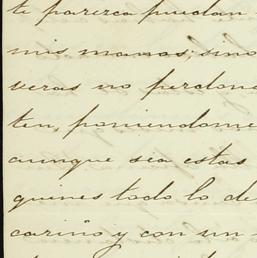 te parezca puedan
mis manos; sino
veras no perdone
ten, poniendome
aunque sea estas
quines todo lo de
cariño y con un